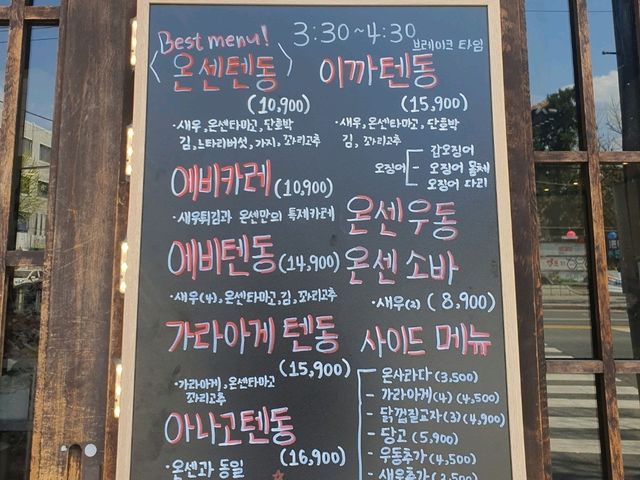 Best menu!
3:30~4:30
브레이크 타임
<온센텐동>
(10,900)
·새우,온센타마고,단호박
김,느타리버섯,가지,꽈리고추
이까텐동
(15,900)
·새우,온센타마고,단호박
김, 꽈리고추
오징어
갑오징어
오징어 몸체
오징어 다리
에비카레 (10,900)
·새우튀김과 온센만의 특제카레
에비텐동 (14,900)
·새우(4),온센타마고,김,꽈리고추
가라아게 텐동
(15,900)
·가라아게,온센타마고
꽈리고추
아나고텐동
(16,900)
·온센과 동일
온센우동
온센 소바
·새우(2) (8,900)
사이드 메뉴
- 온사라다 (3,500)
- 가라아게(4) (4,500)
- 닭껍질교자(3) (4,900)
- 당고 (5,900)
- 우동추가 (4,500)
- 새우추가 (3,500)